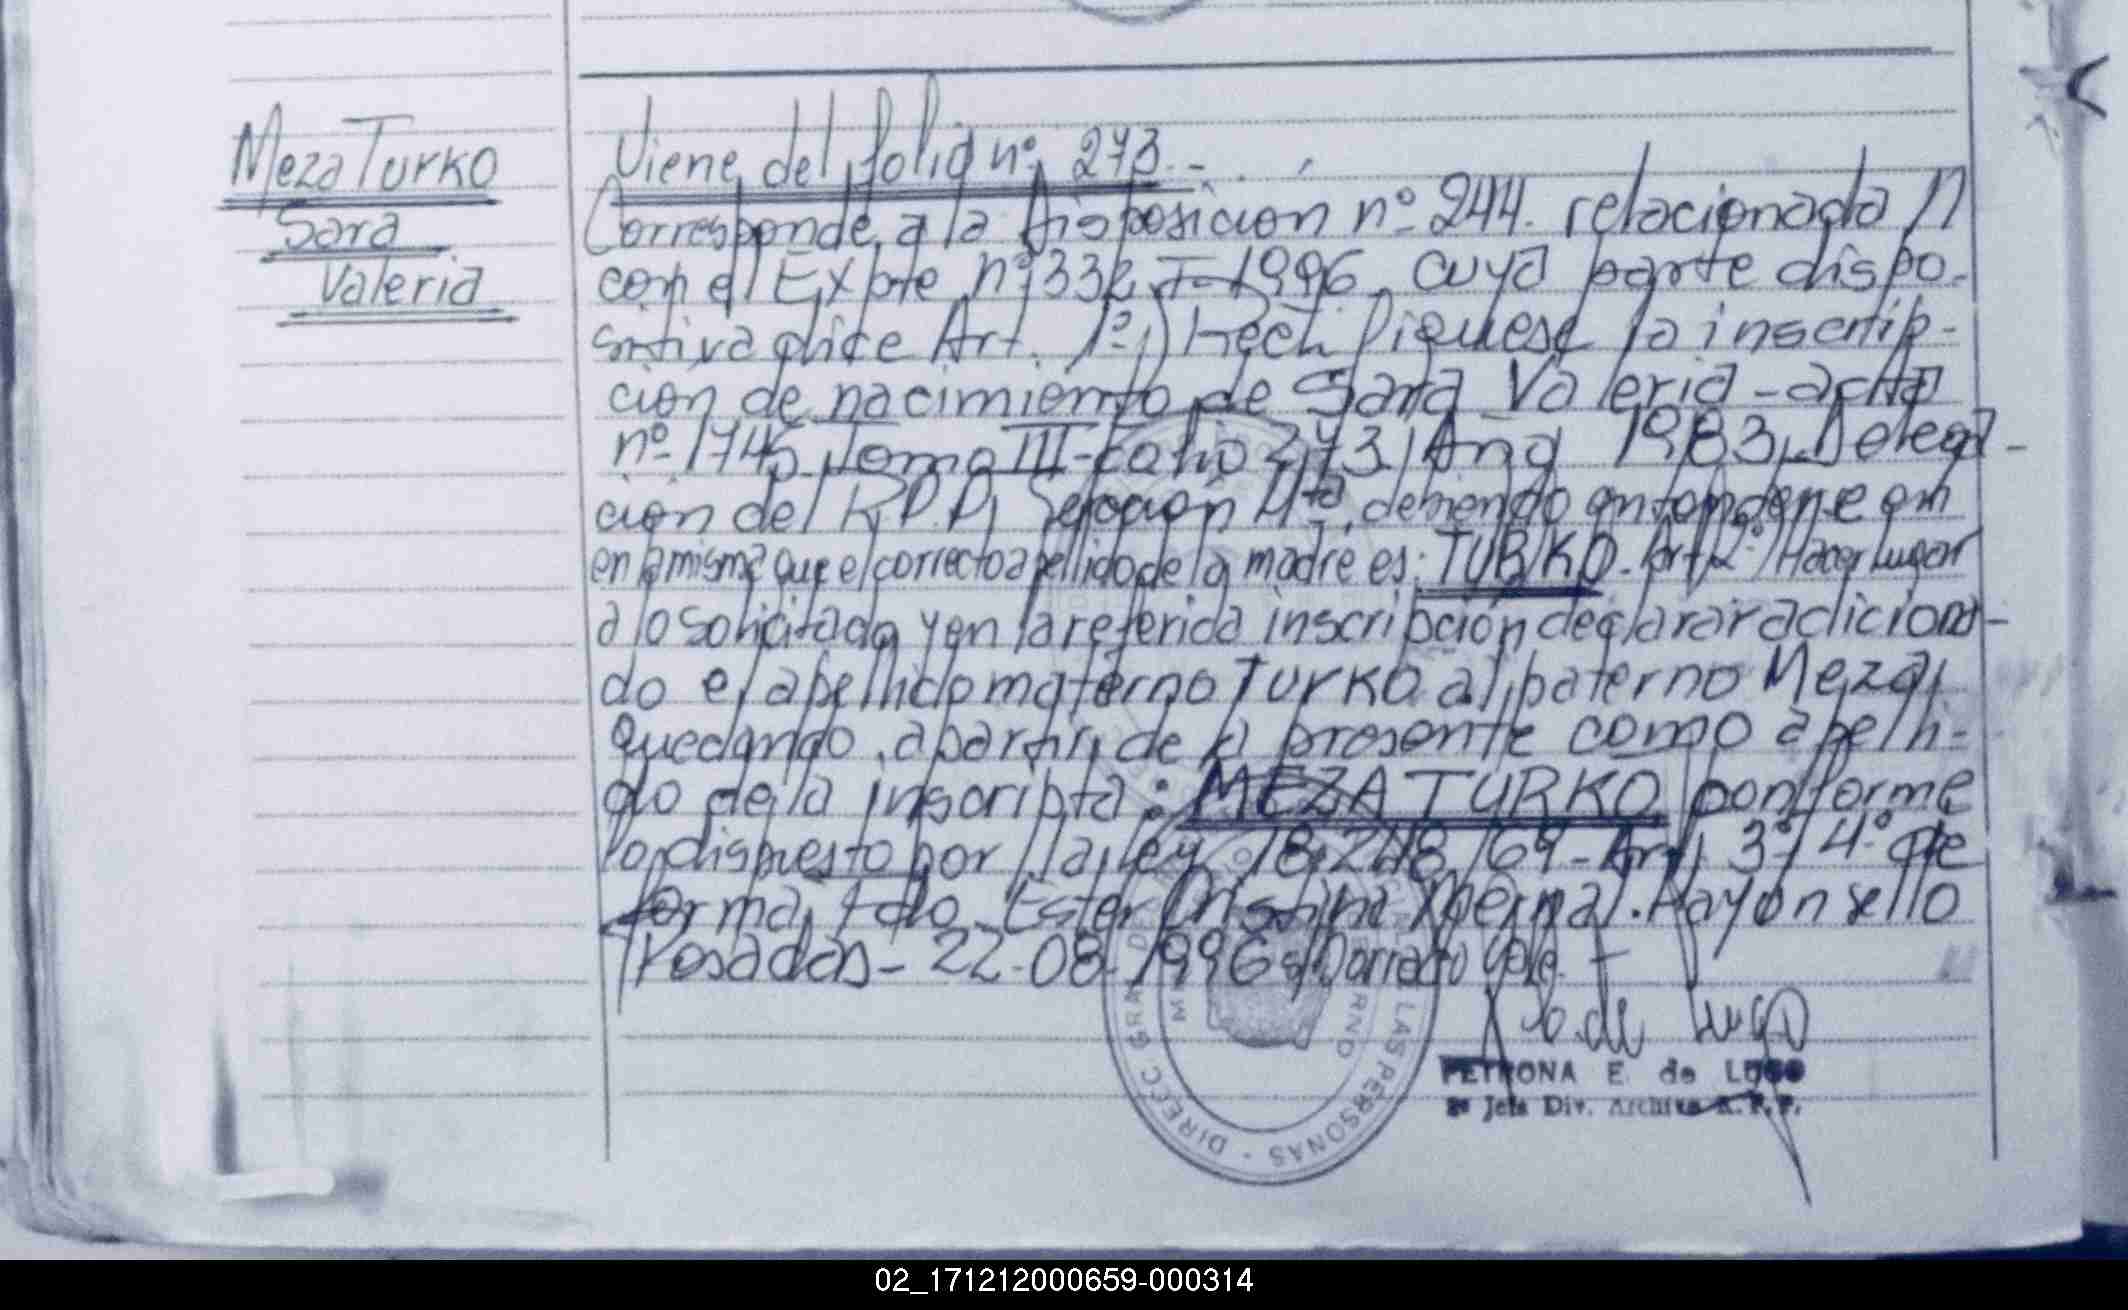 Meza Turko
Sara
Valeria
Viene del folio nº 273.-
Corresponde a la Disposición nº 244. relacionada
con el Expte nº 332-T-1996, cuya parte dispo-
sitiva dice Art. 1º) Rectifíquese la inscrip-
ción de nacimiento de Sara Valeria - acta
nº 1745 Tomo III - folio 273, Año 1983, Delega-
ción del R.P.P, Sección 4ta, debiendo entenderse en
en la misma que el correcto apellido de la madre es: TURKO. Art 2º) Hacer lugar
a lo solicitado y en la referida inscripción declarar adiciona-
do el apellido materno Turko al paterno Meza,
quedando, a partir, de la presente como apelli-
do de la inscripta: MEZA TURKO conforme
lo dispuesto por la ley 18.248/69 - Art, 3º, 4º de
forma, fdo. Ester Cristina. Hay un sello
Posadas - 22-08-1996
P. de Lugo
PETRONA E. de LUGO
2º Jefa Div. Archivo R.P.P.
DIRECC GRAL DE LAS PERSONAS
02_171212000659-000314